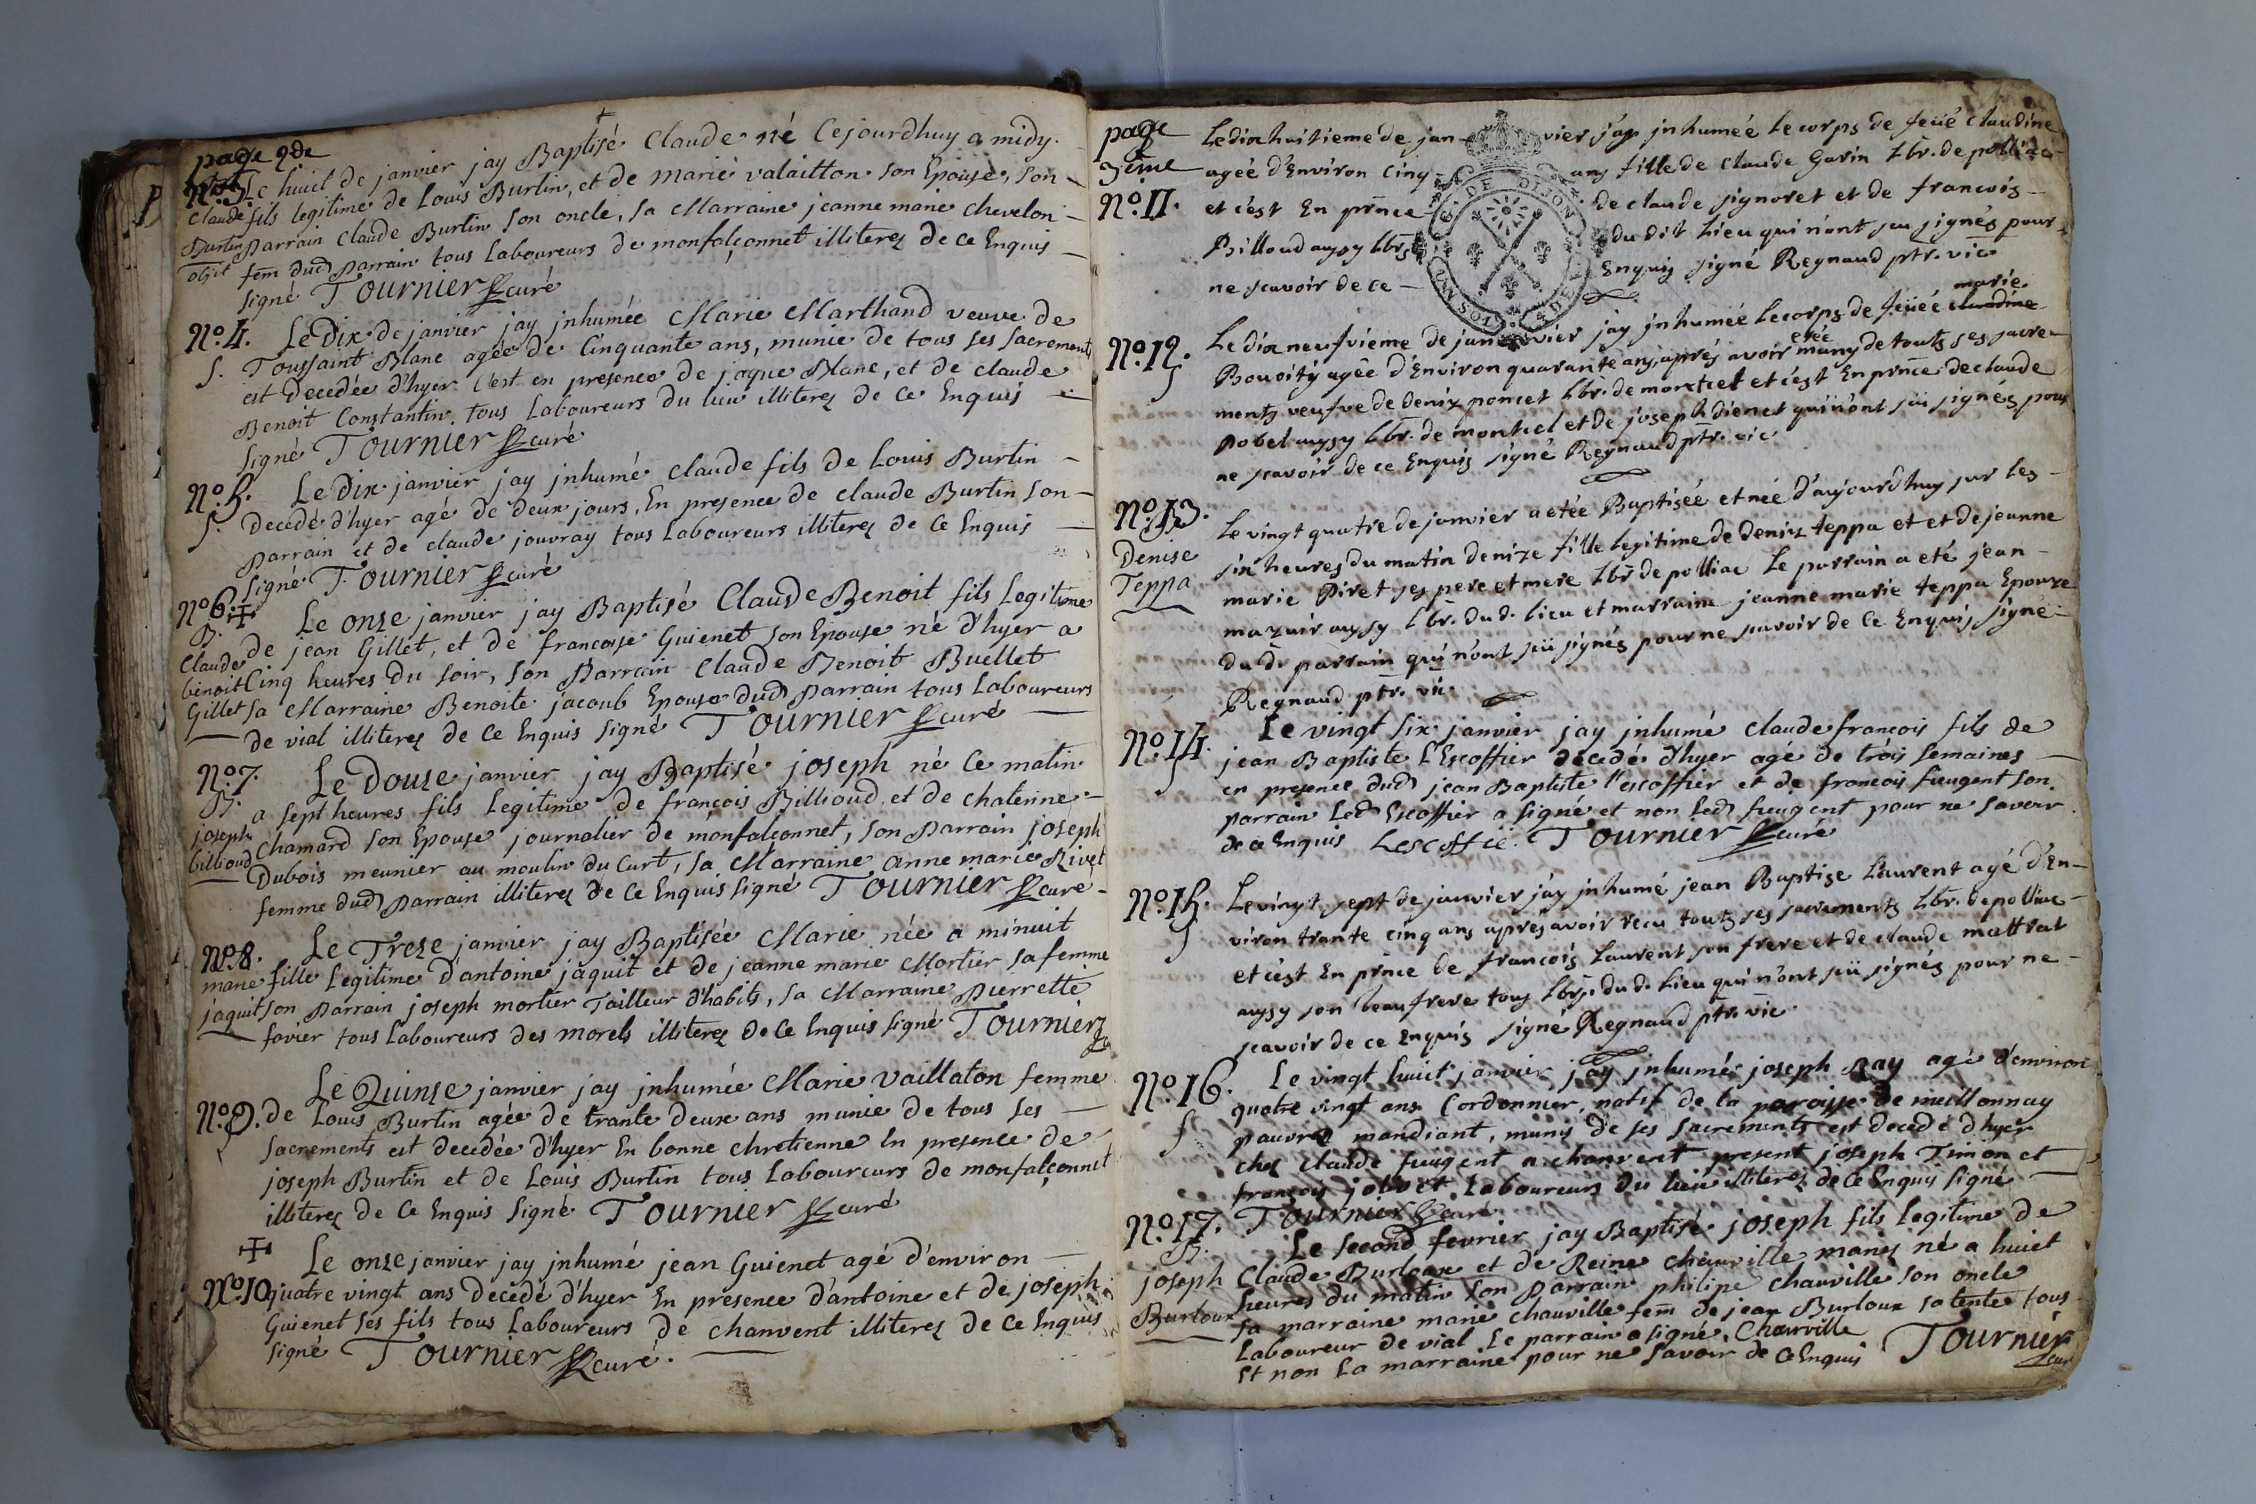 page 2de
No. 3. Le huict de janvier jay Baptisé Claude né Cejourdhuy a midy
Claude fils legitime de Louis Burtin, et de marie valaitton son Epouse, son
Burtin parrain Claude Burtin son oncle, sa Marraine jeanne marie chevelon
obiit fem dud parrain tous Laboureurs de monfalçonnet illiterez de Ce Enquis
signé Tournier curé
No. 4. Le Dix de janvier jay jnhumée Marie Marthand veuve de
S. Toussaint Blanc agée de Cinquante ans, munie de tous ses sacrements
est Decedée d'hyer C'est en presence de jaque Blanc, et de claude
Benoit Constantin tous Laboureurs du lieu illiterez de Ce Enquis
signé Tournier curé
No. 5. Le Dix janvier jay jnhumé claude fils de Louis Burtin
S. Decedé d'hyer agé de deux jours, En presence de claude Burtin son
parrain et de claude jouvray tous Laboureurs illiterez de Ce Enquis
signé Tournier curé
No 6. Le onze janvier jay Baptisé Claude Benoit fils Legitime
B. de jean Gillet, et de francoise Guienet son Epouse né d'hyer a
Claude benoit Cinq heures du soir, son Parrain Claude Benoit Buellet
Gillet sa Marraine Benoite jacoub Epouse dud parrain tous Laboureurs
de vial illiterez de Ce Enquis signé Tournier curé
No 7. Le Douze janvier jay Baptisé joseph né Ce matin
B. a sept heures fils Legitime de françois Billioud, et de Chaterine
joseph Chamard son Epouse journalier de monfalçonnet, son Parrain joseph
billioud Dubois meunier au moulin du Curt, sa Marraine anne marie Rivet
femme dud parrain illiterez de Ce Enquis signé Tournier curé
No. 8. Le Treze janvier jay Baptisée Marie née a minuit
marie fille Legitime d'antoine jaquit et de jeanne marie Mortier sa femme
jaquit son Parrain joseph mortier Tailleur d'habits, sa Marraine Pierrette
favier tous Laboureurs des morels illiterez de Ce Enquis signé Tournier
Le Quinze janvier jay jnhumée Marie Vaillaton femme
No. 9. de Louis Burtin agée de trante Deux ans munie de tous ses
sacrements est decedée d'hyer En bonne chretienne En presence de
joseph Burtin et de Louis Burtin tous Laboureurs de monfalçonnet
illiterez de Ce Enquis signé Tournier curé
Le onze janvier jay jnhumé jean Guienet agé d'environ
No. 10 quatre vingt ans Decedé d'hyer En presence d'antoine et de joseph
Guienet ses fils tous Laboureurs de chanvent illiterez de Ce Enquis
signé Tournier curé.
page Le dix huitieme de janvier j'ay jnhumée le corps de feüé claudine
3eme agée d'Environ Cinq ans fille de claude Gavin Lbr. de
No. 11. et c'est En prnce de claude signoret et de francois
Billoud aussy Lbrs du dit Lieu qui n'ont seu signés pour
ne scavoir de ce Enquis signé Regnaud ptr. vic
marie
No. 12. Le dix neufvieme de janvier jay jnhumée le corps de feüée claudine
etée
Bouvity agée d'Environ quarante ans, aprés avoir muny de touts ses sacre
ments veufve de Deniz poncet Lbr. de montcel et c'est En prnce de claude
Pobel aussy Lbr. de montcel et de joseph dienet qui n'ont sü signés pour
ne scavoir de ce Enquis signé Regnaud ptr. vic
No. 13. Le vingt quatre de janvier a etée Baptisée et née d'aujourd'huy sur les
Denise six heures du matin Denize fille legitime de Deniz teppa et et de jeanne
Teppa marie Piret ses pere et mere Lbr de polliac Le parrain a eté jean
mazuir aussy Lbr. du d. lieu et marraine jeanne marie teppa Epouze
du d. parrain qui n'ont sü signés pour ne scavoir de Ce Enquis signé
Regnaud ptr. vic
No. 14. Le vingt six janvier jay jnhumé claude francois fils de
jean Baptiste L'Escoffier decedé d'hyer agé de trois semaines
en presence dud jean Baptiste l'escoffier et de francois fuugent son
parrain Led Escoffier a signé et non Led fuugent pour ne savoir
de ce Enquis Lescoffié. Tournier curé
No. 15. Le vingt sept de janvier j'ay jnhumé jean Baptize Laurent agé d'En
viron trante cinq ans aprés avoir recu touts ses sacrements Lbr. de polliac
et c'est En prnce de francois Laurent son frere et de claude mattrat
aussy son beau frere tous Lbrs. du d. lieu qui n'ont sü signés pour ne
scavoir de ce Enquis signé Regnaud ptr. vic
No. 16. Le vingt huit janvier jay jnhumé joseph Ray agé d'environ
quatre vingt ans Cordonnier, natif de la paroisse de meillonnay
pauvre mandiant, munis de ses sacrements est decedé d'hyer
chez claude fuugent a chanvent present joseph Timon et
francois jolivet Laboureurs du lieu illiterez de Ce Enquis signé
Tournier curé
No. 17. Le second fevrier jay Baptisé joseph fils Legitime de
B. joseph Claude Burloux et de Reine chauville mariez né a huict
Burloux heures du matin son Parrain philipe chauville son oncle
sa marraine marie chauville fem de jean Burloux sa tente tous
Laboureur de vial Le parrain a signé. Chauville
et non La marraine pour ne savoir de Ce Enquis Tournier
curé